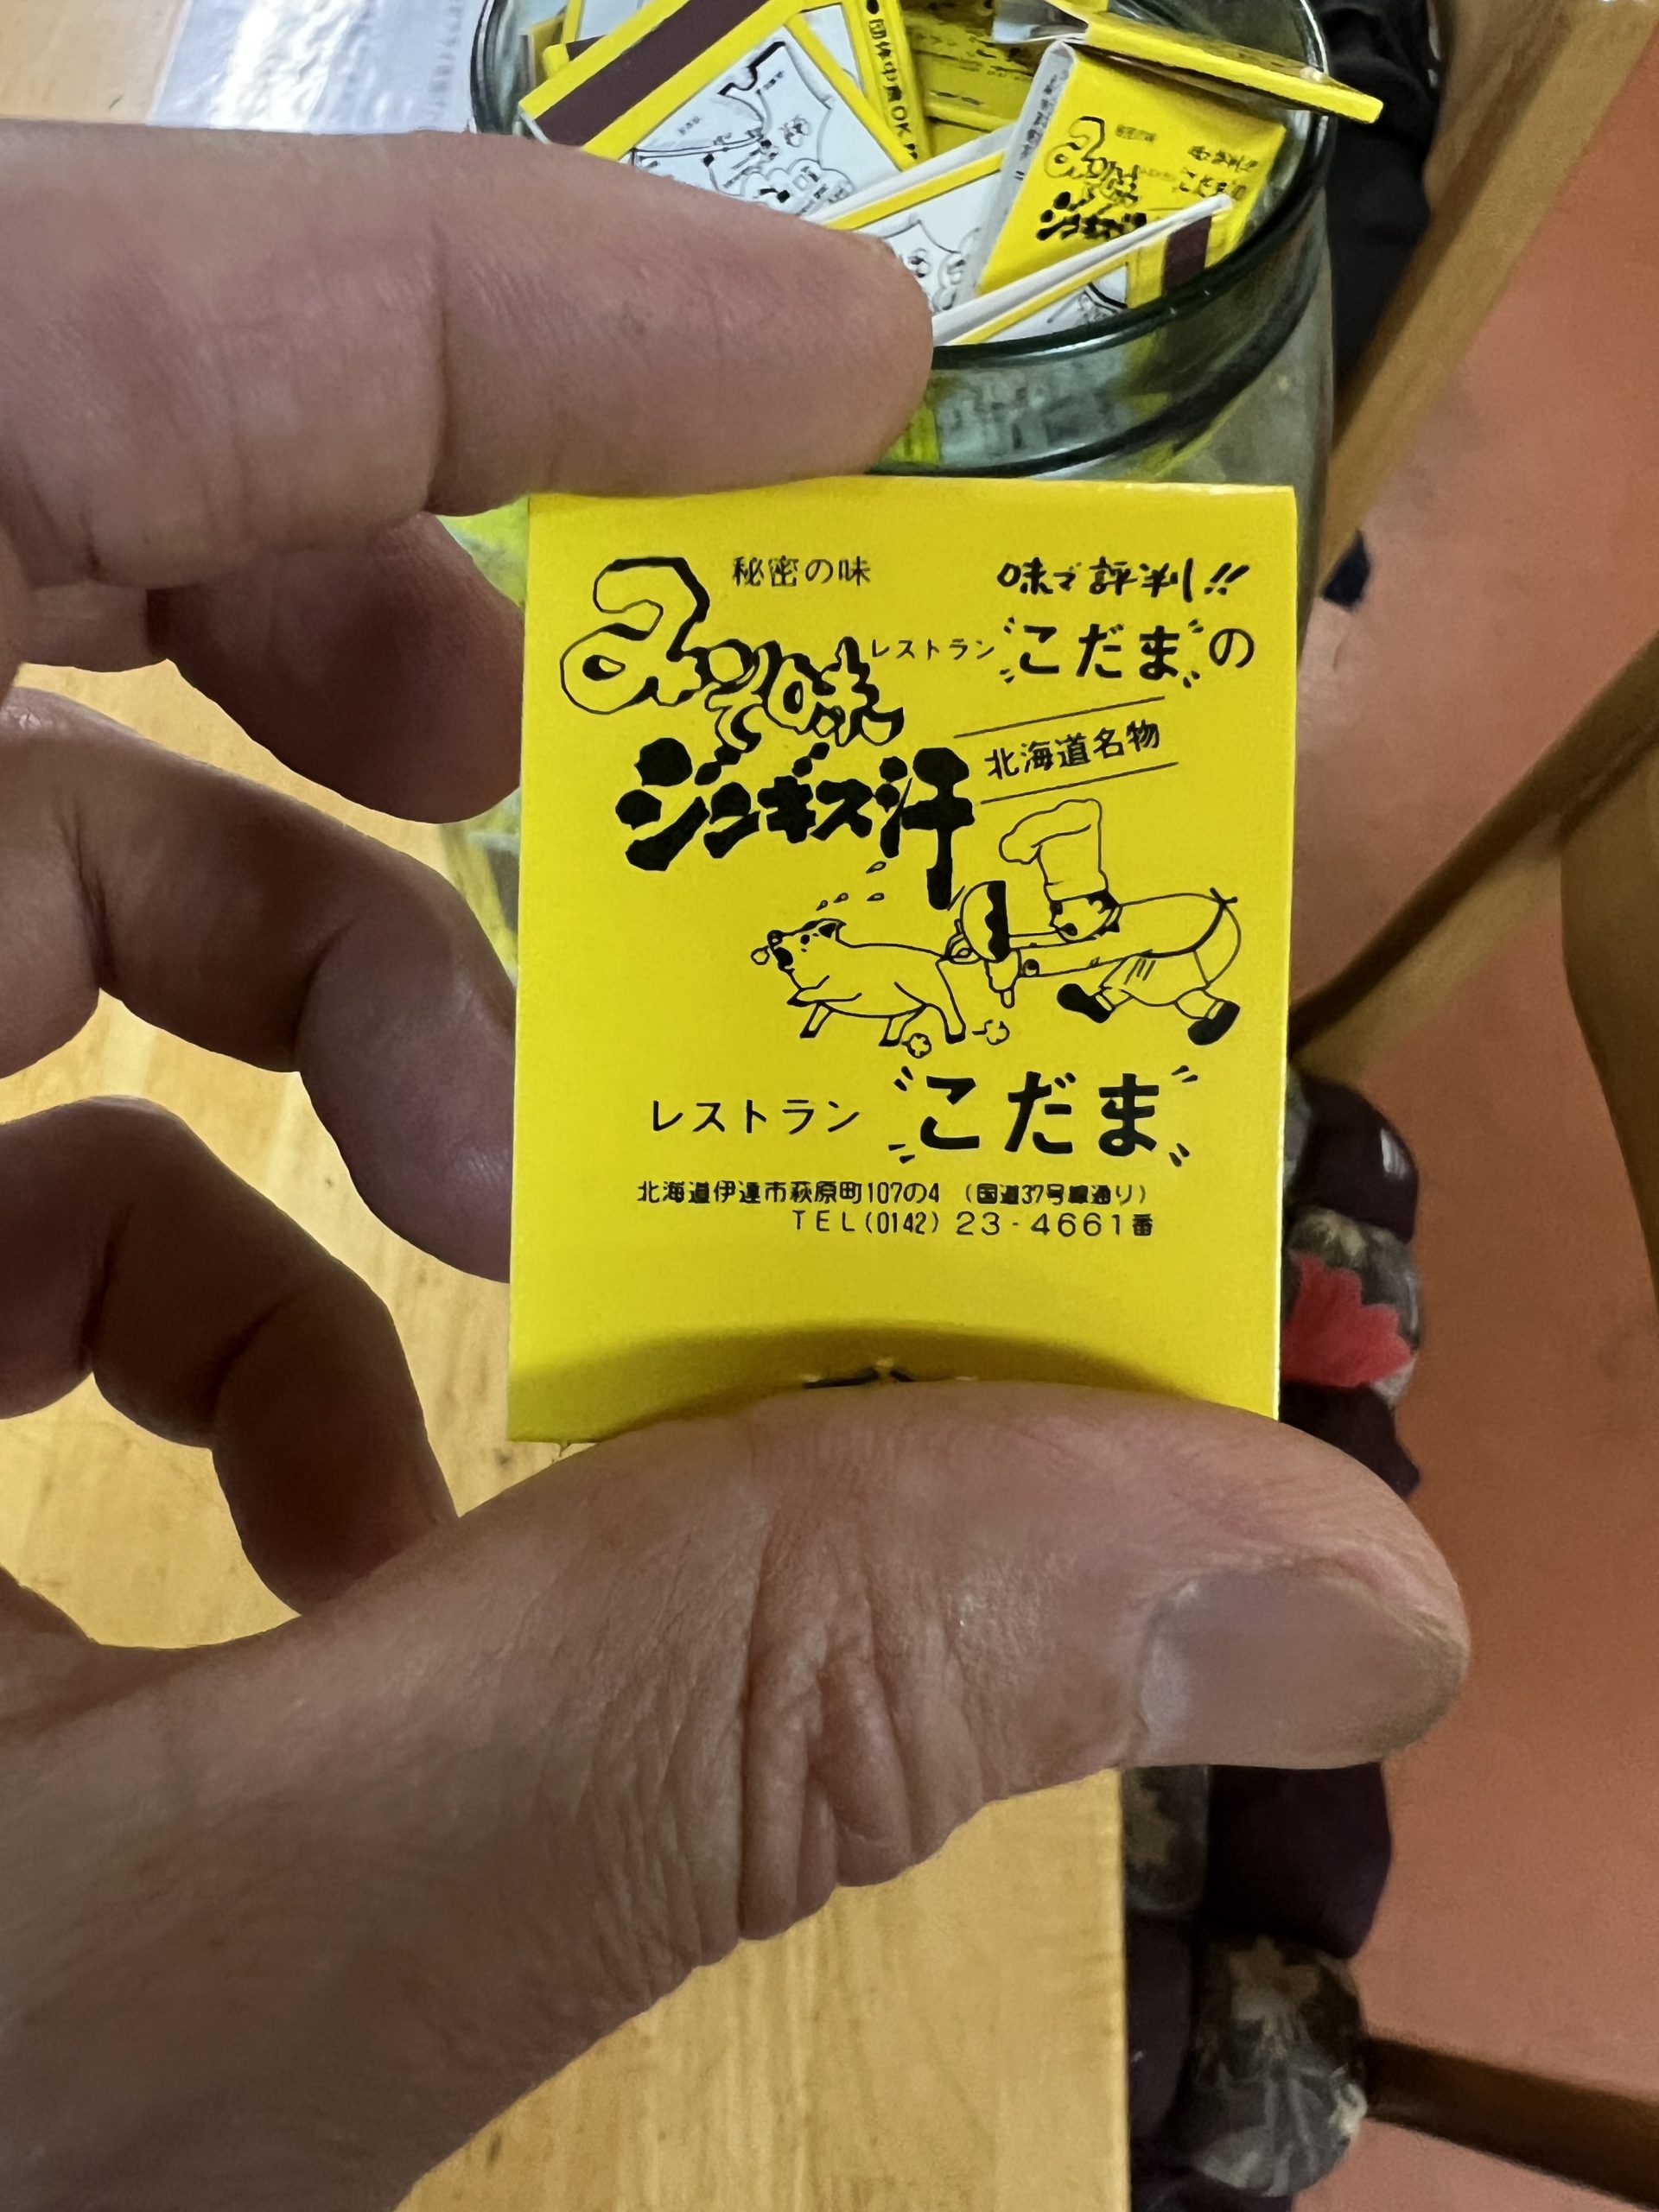 団体申席OK
秘密の味
味で評判!!
みそ味
レストラン "こだま"の
ジンギス汗
北海道名物
レストラン "こだま"
北海道伊達市萩原町107の4 (国道37号線通り)
TEL(0142) 23-4661番